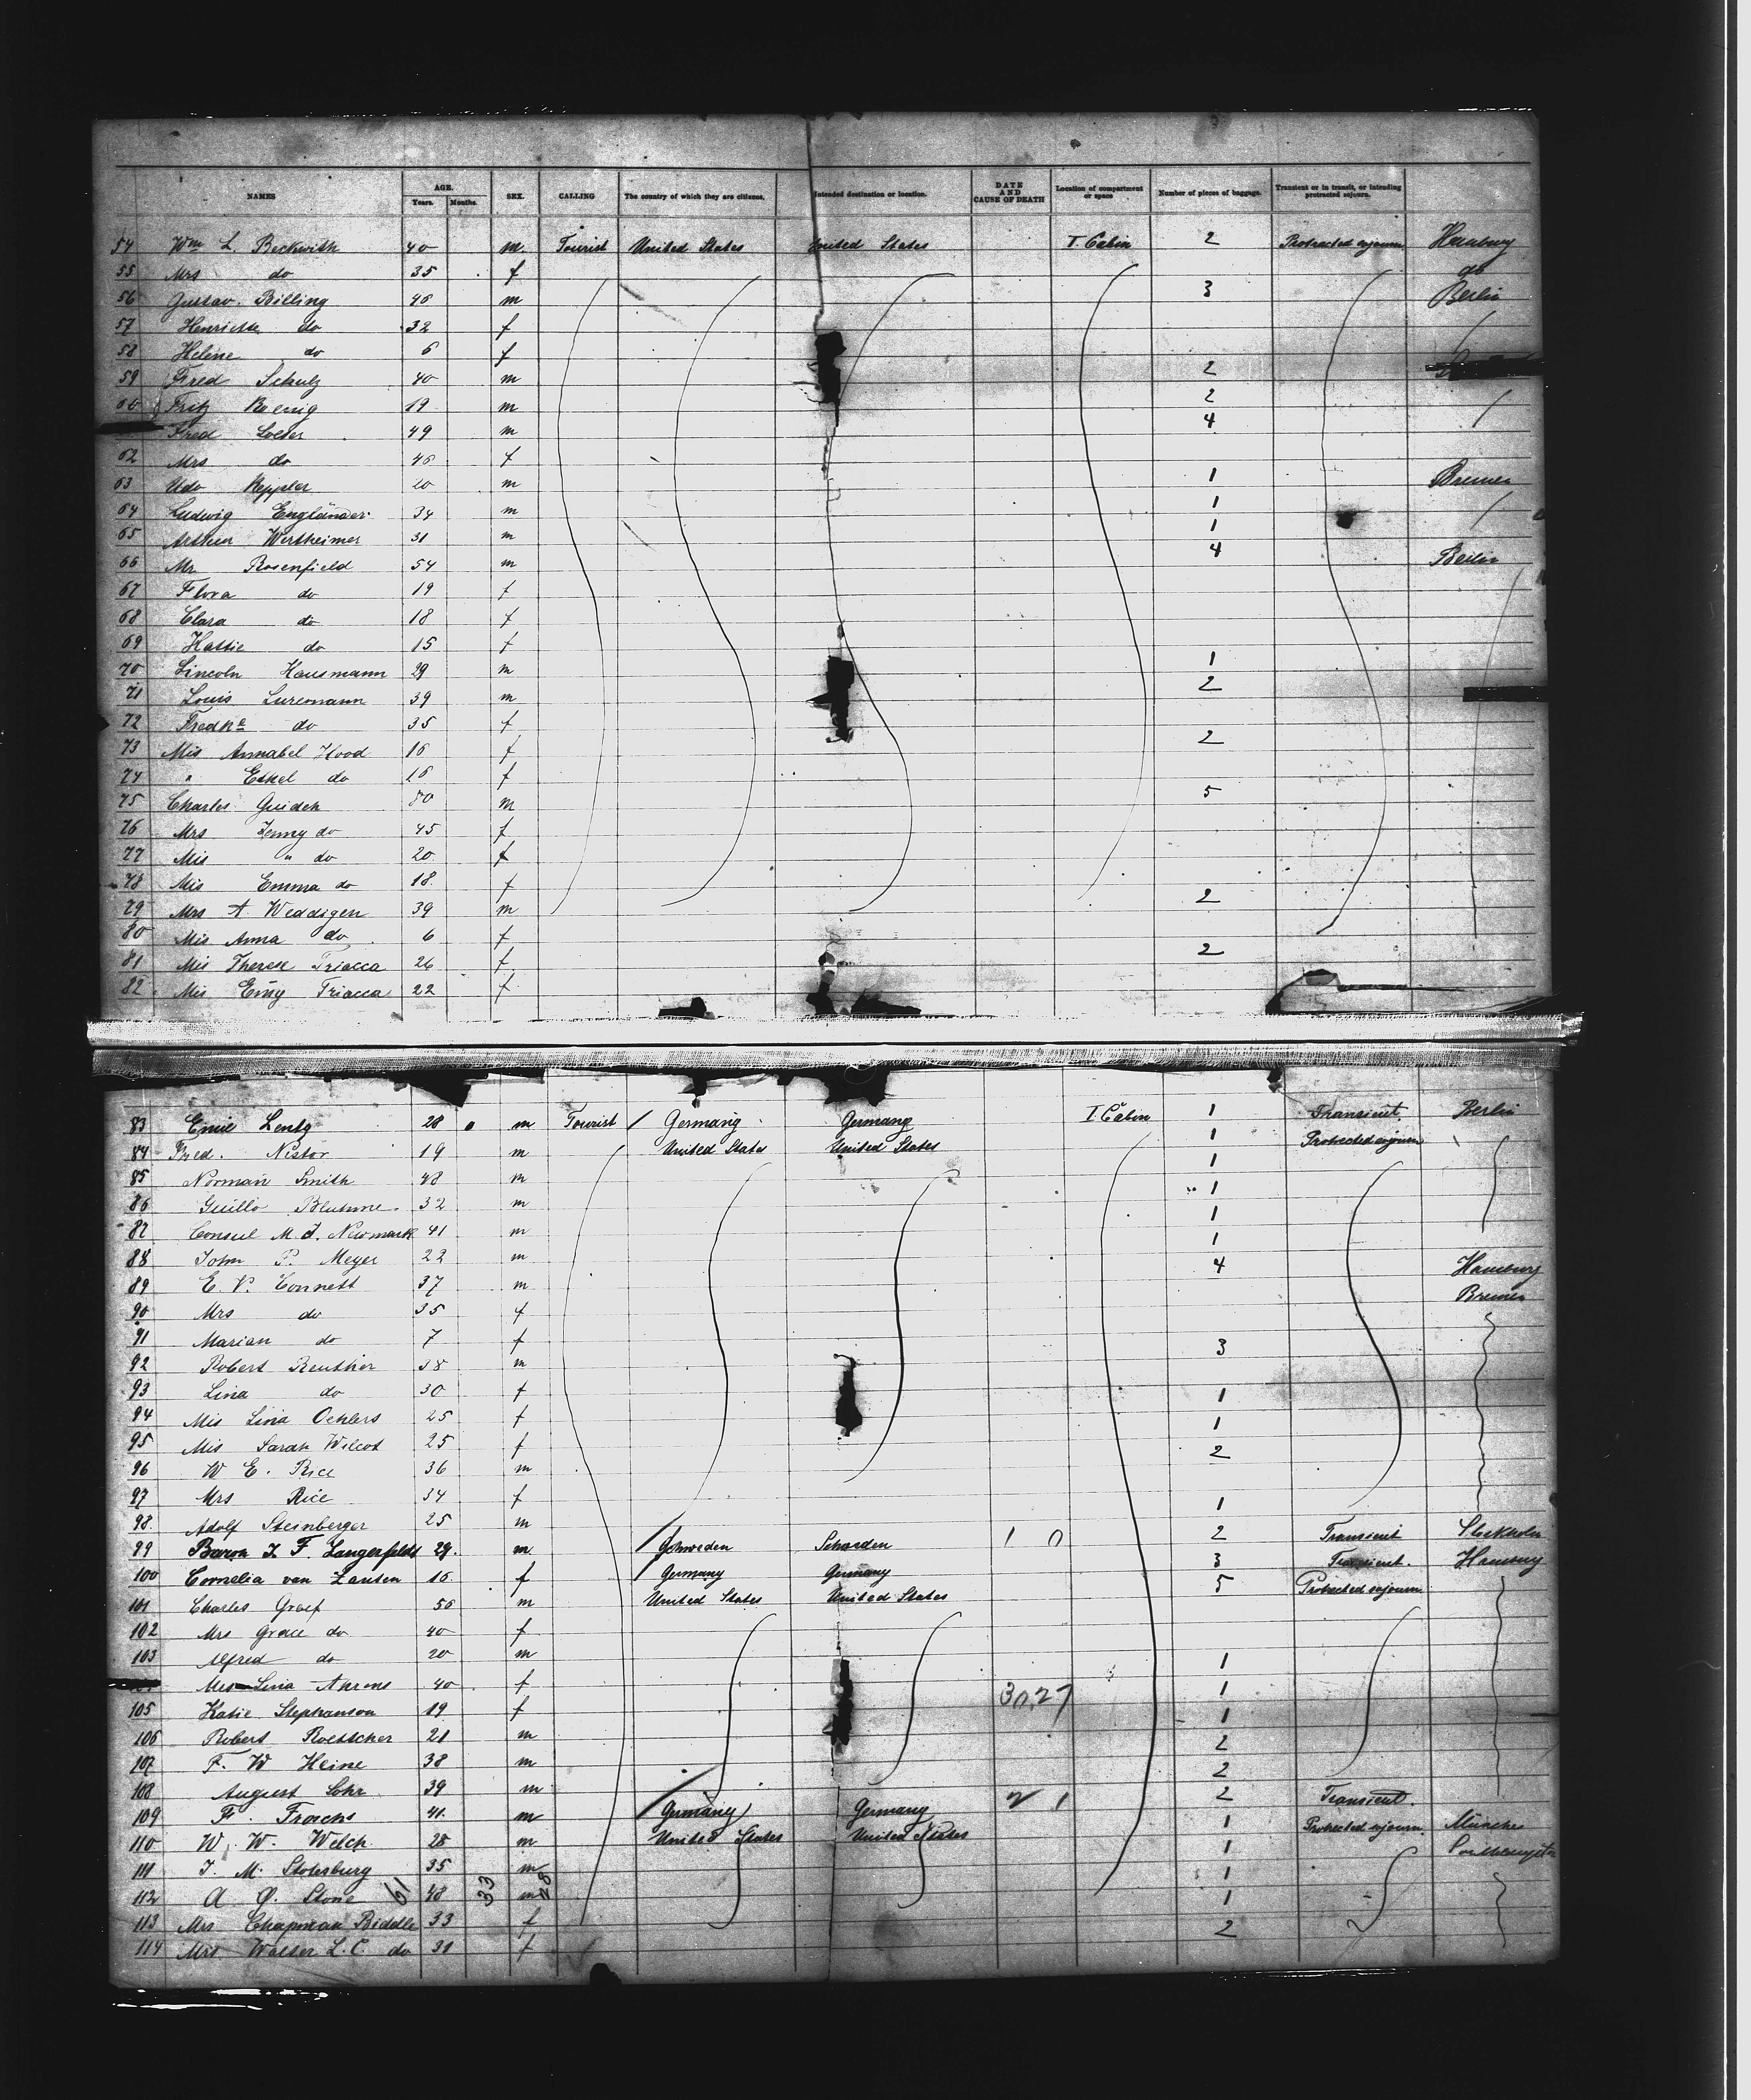 NAMES AGE. Years. Months. SEX. CALLING The country of which they are citizens. Intended destination or location. DATE AND CAUSE OF DEATH Location of compartment or space Number of pieces of baggage. Transient or in transit, or intending protracted sojourn.
54 Wm L Beckwith 40 m. Tourist United States United States I. Cabin 2 Protracted sojourn Hamburg
55 Mrs do 35 f do
56 Gustav. Billing 46 m 3 Berlin
57 Henriette do 32 f
58 Helene do 6 f
59 Fred Schulz 40 m 2
60 Fritz Koenig 19 m 2
Fred Loeser 49 m 4
62 Mrs do 46 f
63 Udo Keppler 20 m 1 Bremen
64 Ludwig Engländer 34 m 1
65 Arthur Wertheimer 31 m 1
66 Mr Rosenfield 54 m 4 Berlin
67 Flora do 19 f
68 Clara do 18 f
69 Hattie do 15 f
70 Lincoln Hausmann 29 m 1
71 Louis 39 m 2
72 Fredke do 35 f
73 Mis Annabel Hood 16 f 2
74 " Ethel do 16 f
75 Charles Guideh 50 m 5
76 Mrs Jenny do 45 f
77 Mis " do 20 f
78 Mis Emma do 18 f
79 Mrs A Weddigen 39 m 2
80 Mis Anna do 6 f
81 Mis Therese Triacca 26 f 2
82 Mis Emy Triacca 22 f
83 Emil Lentz 28 m Tourist Germany Germany I Cabin 1 Transient. Berlin
84 Fred. Nestor 19 m United States United States 1 Protracted sojourn
85 Norman Smith 48 m 1
86 Guillo Bluhme 32 m 1
87 Consul M. J. Newmark 41 m 1
88 John P. Meyer 22 m 1
89 E. V. Connett 37 m 4 Hamburg
90 Mrs do 35 f Bremen
91 Marian do 7 f
92 Robert Reuther 38 m 3
93 Lina do 30 f
94 Mis Lina Oehlers 25 f 1
95 Mis Sarah Wilcot 25 f 1
96 W E. Rice 36 m 2
97 Mrs Rice 34 f
98. Adolf Steinberger 25 m 1
99 Baron J. F. Langerfeldt 29. m Schweden Schweden 1 0 2 Transient Stockholm
100 Cornelia van Zanten 16 f Germany Germany 3 Transient. Hamburg
101 Charles Graef 56 m United States United States 5 Protracted sojourn
102 Mrs Grace do 40 f
103 Alfred do 20 m
Mrs Lina Ahrens 40 f 1
105 Katie Stephanson 19 f 30,27 1
106 Robert Roettcher 21 m 1
107 F. W Heine 38 m 2
108 August Lohr 39 m 2
109 F. Froechs 41. m Germany Germany 2 1 2 Transient.
110 W. W. Welch 28 m United States United States 1 Protracted sojourn München
111 J. M. Stotesburg 35 m 1
112 A. O. Stone 61 48 33 m 28 1
113 Mrs Chapman Biddle 33 f 1
114 Mrs Walter L. C. do 31 f 2